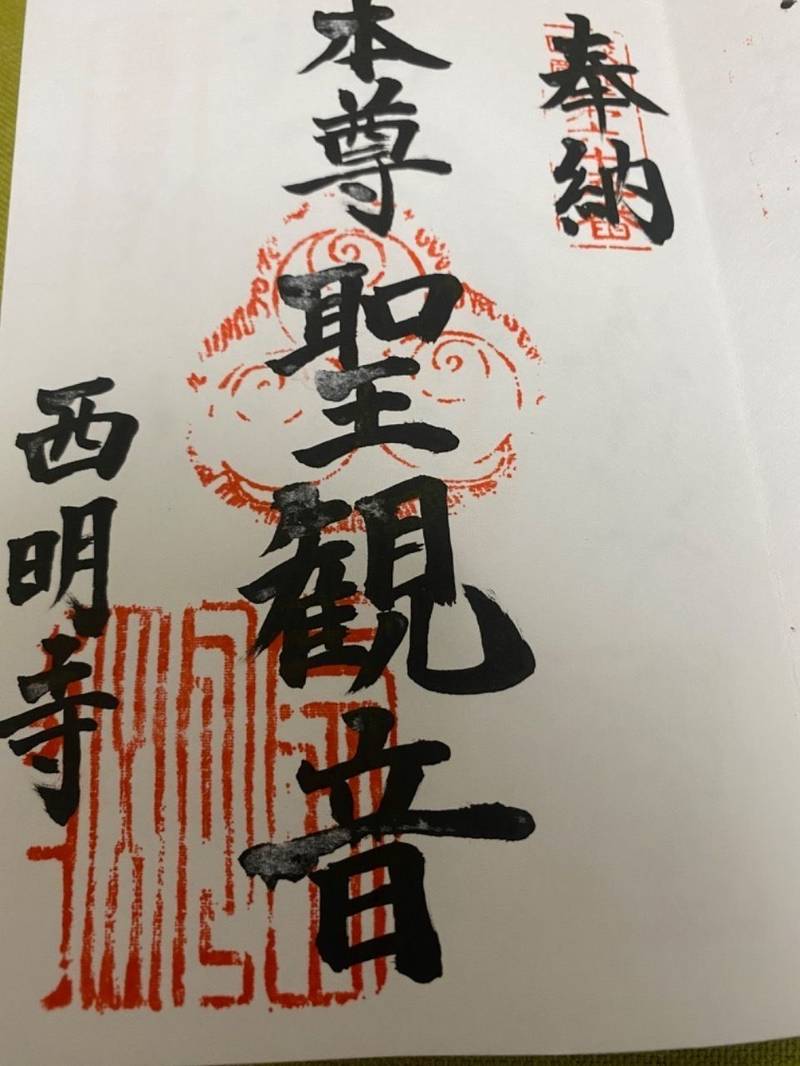 奉納
本尊
聖観音
西明寺